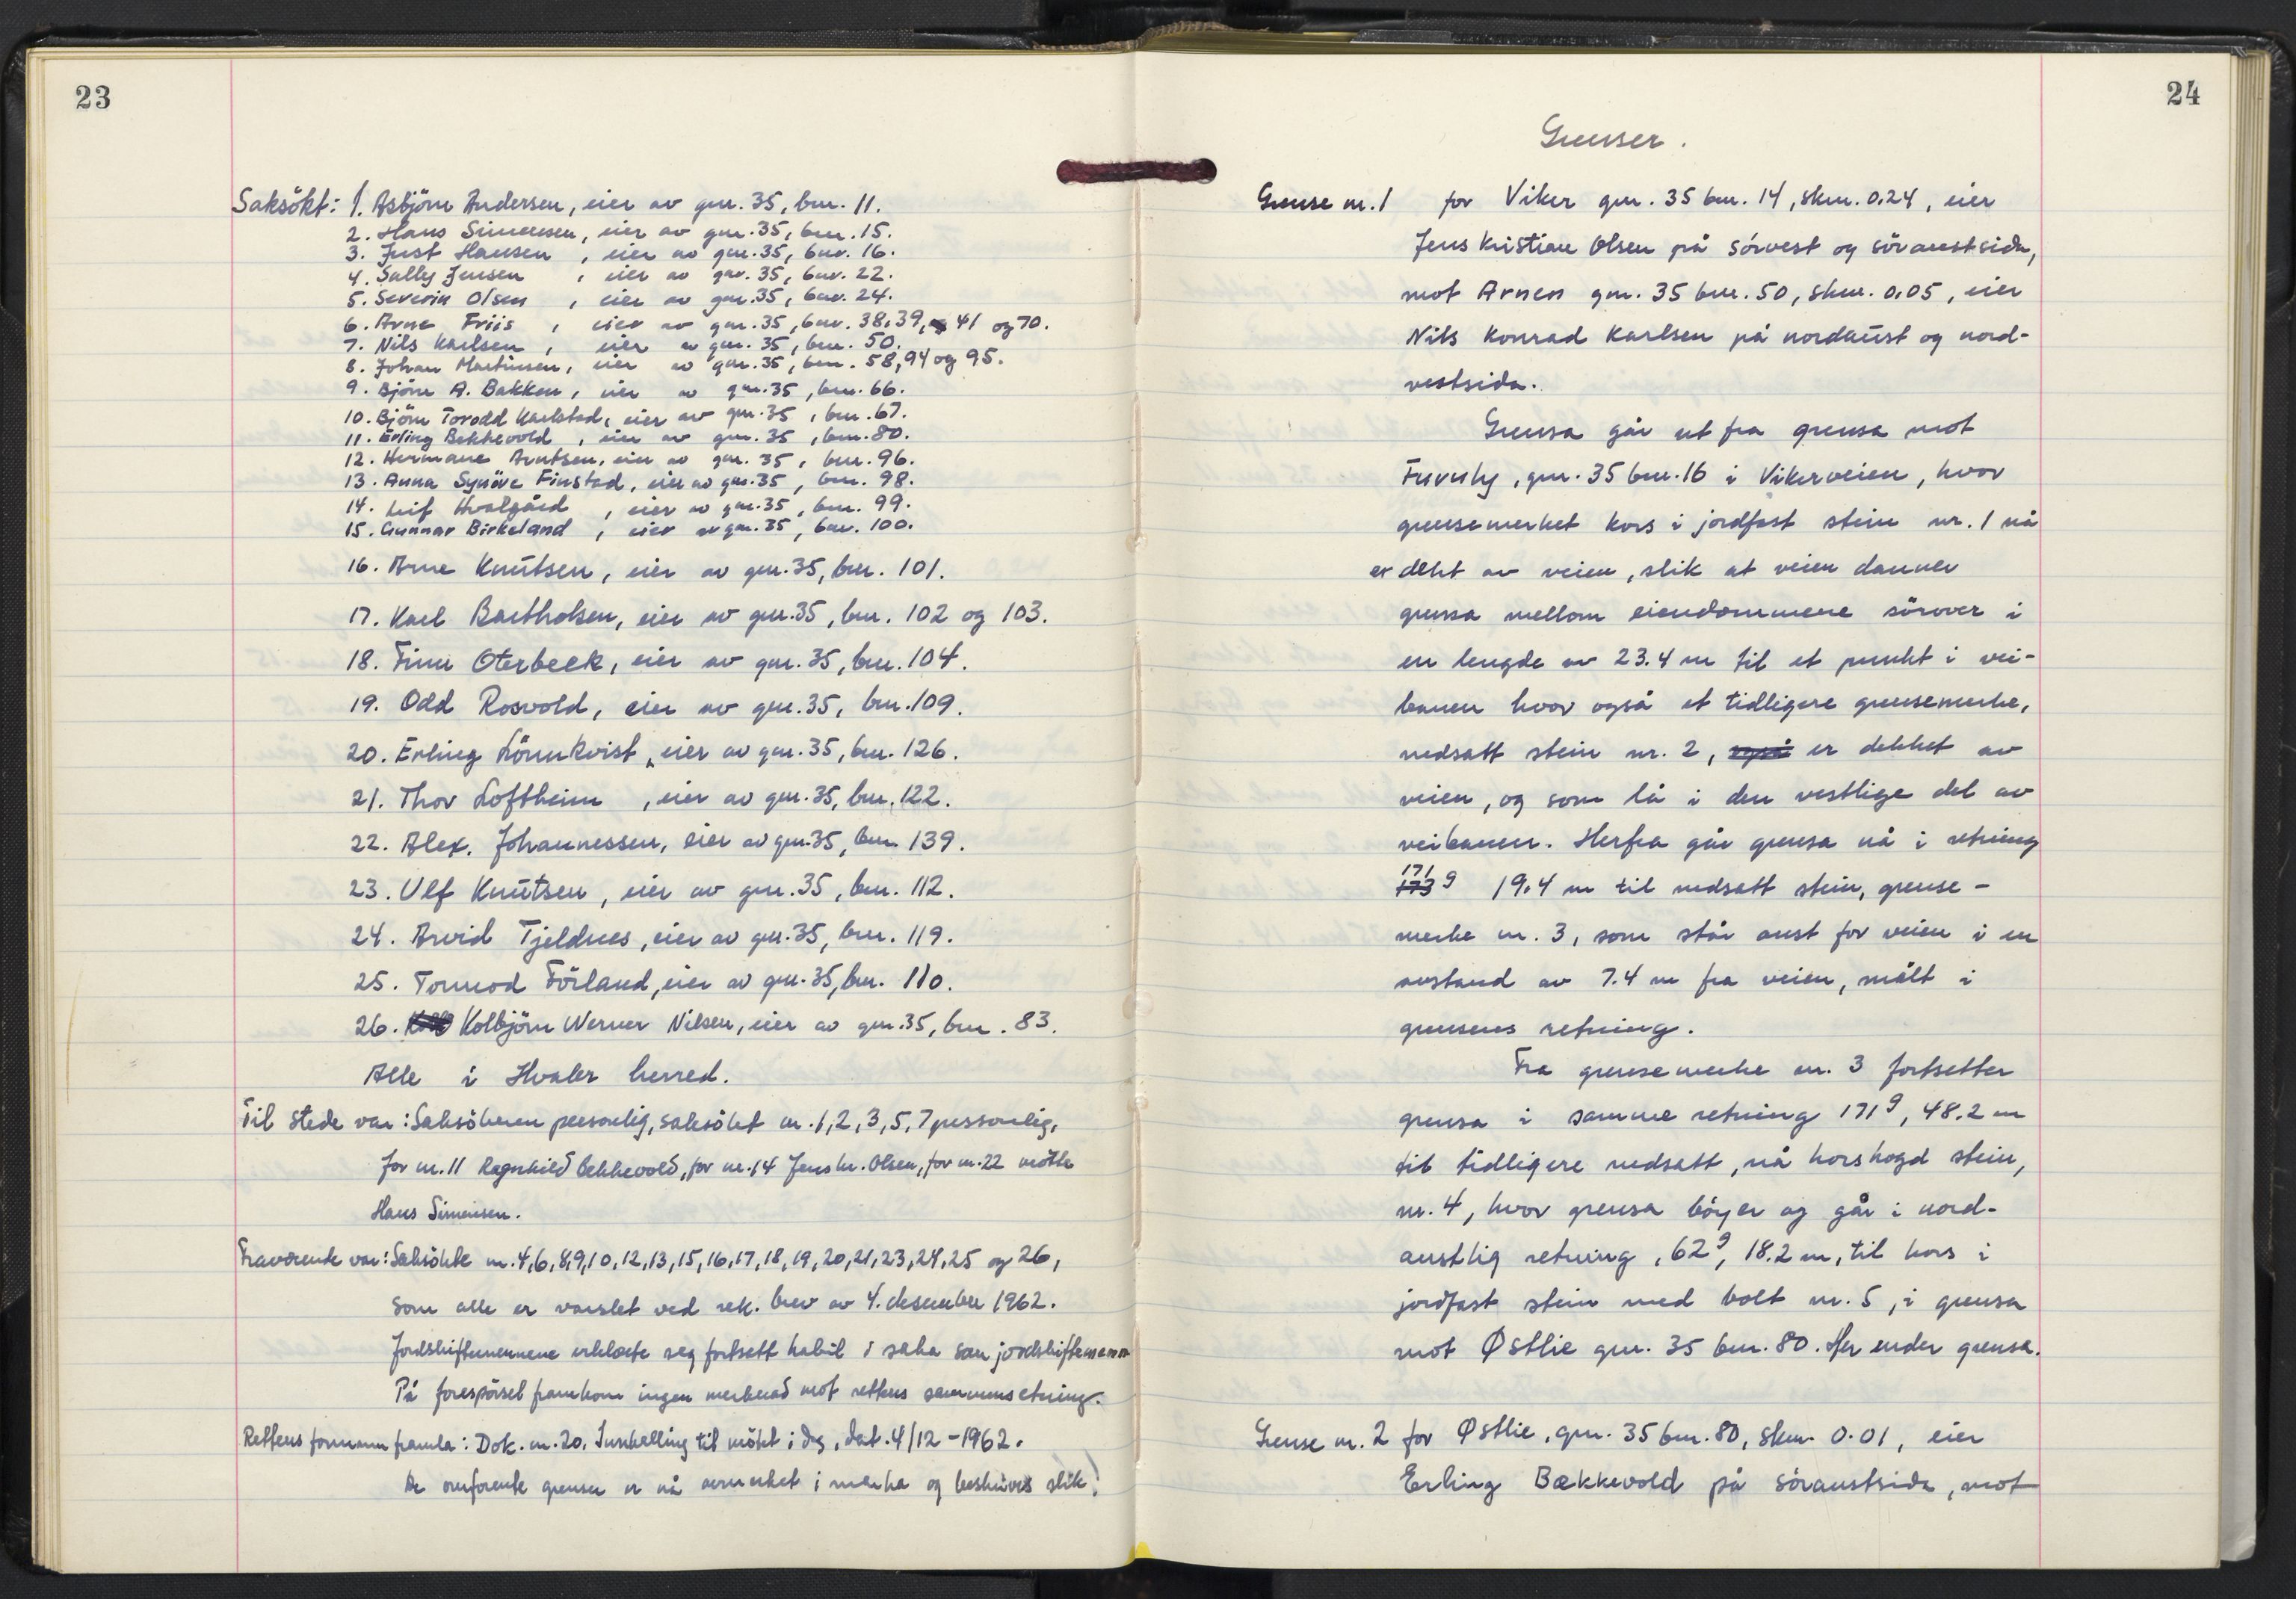 23
Saksökt: 1. Asbjörn Andersen, eier av gnr. 35, bnr. 11.
2. Hans Simensen, eier av gnr. 35, bnr. 15.
3. Just Hansen , eier av gnr. 35, bnr. 16.
4. Sally Jensen , eier av gnr. 35, bnr. 22.
5. Severin Olsen , eier av gnr. 35, bnr. 24.
6. Arne Friis , eier av gnr. 35, bnr. 38,39, 41 og 70.
7. Nils Karlsen , eier av gnr. 35, bnr. 50.
8. Johan Martinsen, eier av gnr. 35, bnr. 58, 94 og 95.
9. Björn A. Bakken, eier av gnr. 35, bnr. 66.
10. Björn Torodd Karlstad, eier av gnr. 35, bnr. 67.
11. Erling Bekkevold , eier av gnr. 35, bnr. 80.
12. Hermane Arntsen, eier av gnr. 35, bnr. 96.
13. Anna Synöve Finstad, eier av gnr. 35, bnr. 98.
14. Leif Hvalgård , eier av gnr. 35, bnr. 99.
15. Gunnar Birkeland , eier av gnr. 35, bnr. 100.
16. Arne Knutsen, eier av gnr. 35, bnr. 101.
17. Karl Bartholsen, eier av gnr. 35, bnr. 102 og 103.
18. Finn Oterbeck, eier av gnr. 35, bnr. 104.
19. Odd Rosvold, eier av gnr. 35, bnr. 109.
20. Erling Lönnkvist, eier av gnr. 35, bnr. 126.
21. Thor Loftheim , eier av gnr. 35, bnr. 122.
22. Alex. Johannessen, eier av gnr. 35, bnr. 139.
23. Ulf Knutsen, eier av gnr. 35, bnr. 112.
24. Arvid Tjeldnes, eier av gnr. 35, bnr. 119.
25. Tormod Förland, eier av gnr. 35, bnr. 110.
26. Kolbjörn Werner Nilsen, eier av gnr. 35, bnr. 83.
Alle i Hvaler herred.
Til stede var: Saksökeren personlig, saksökt nr. 1, 2, 3, 5, 7 personlig,
for nr. 11 Ragnhild Bekkevold, for nr. 14 Jens kr. Olsen, for nr. 22 mötte
Hans Simensen.
Fraværende var: Saksökte nr. 4, 6, 8, 9, 10, 12, 13, 15, 16, 17, 18, 19, 20, 21, 23, 24, 25 og 26,
som alle er varslet ved rek. brev av 4. desember 1962.
Jordskiftemennene erklærte seg fortsatt habil i saka som jordskiftemenn
På forespörsel framkom ingen merknad mot rettens sammensetning.
Rettens formann framla: Dok. nr. 20. Innkalling til mötet i dag, dat. 4/12 - 1962.
De omforente grenser er nå avmerket i marka og beskrives slik:
24
Grenser.
Grense nr. 1 for Viker gnr. 35 bnr. 14, skm. 0.24, eier
Jens Kristian Olsen på sörvest og söraustsida,
mot Arnen gnr. 35 bnr. 50, skm. 0.05, eier
Nils Konrad Karlsen på nordaust og nord-
vestsida.
Grensa går ut fra grensa mot
Furuly, gnr. 35 bnr. 16 i Vikerveien, hvor
grensemerket kors i jordfast stein nr. 1 nå
er dekt av veien, slik at veien danner
grensa mellom eiendommene sörover i
en lengde av 23.4 m til et punkt i vei-
banen hvor også et tidligere grensemerke,
nedsatt stein nr. 2, også er dekket av
veien, og som lå i den vestlige del av
veibanen. Herfra går grensa nå i retning
171
173 g 19.4 m til nedsatt stein, grense-
merke nr. 3, som står aust for veien i en
avstand av 7.4 m fra veien, målt i
grensens retning.
Fra grensemerke nr. 3 fortsetter
grensa i samme retning 171 g, 48.2 m
til tidligere nedsatt, nå korshogd stein,
nr. 4, hvor grensa böyer og går i nord-
austlig retning, 62 g, 18.2 m, til kors i
jordfast stein med bolt nr. 5, i grensa
mot Østlie gnr. 35 bnr. 80. Her ender grensa.
Grense nr. 2 for Østlie, gnr. 35 bnr. 80, skm 0.01, eier
Erling Bækkevold på söraustsida, mot